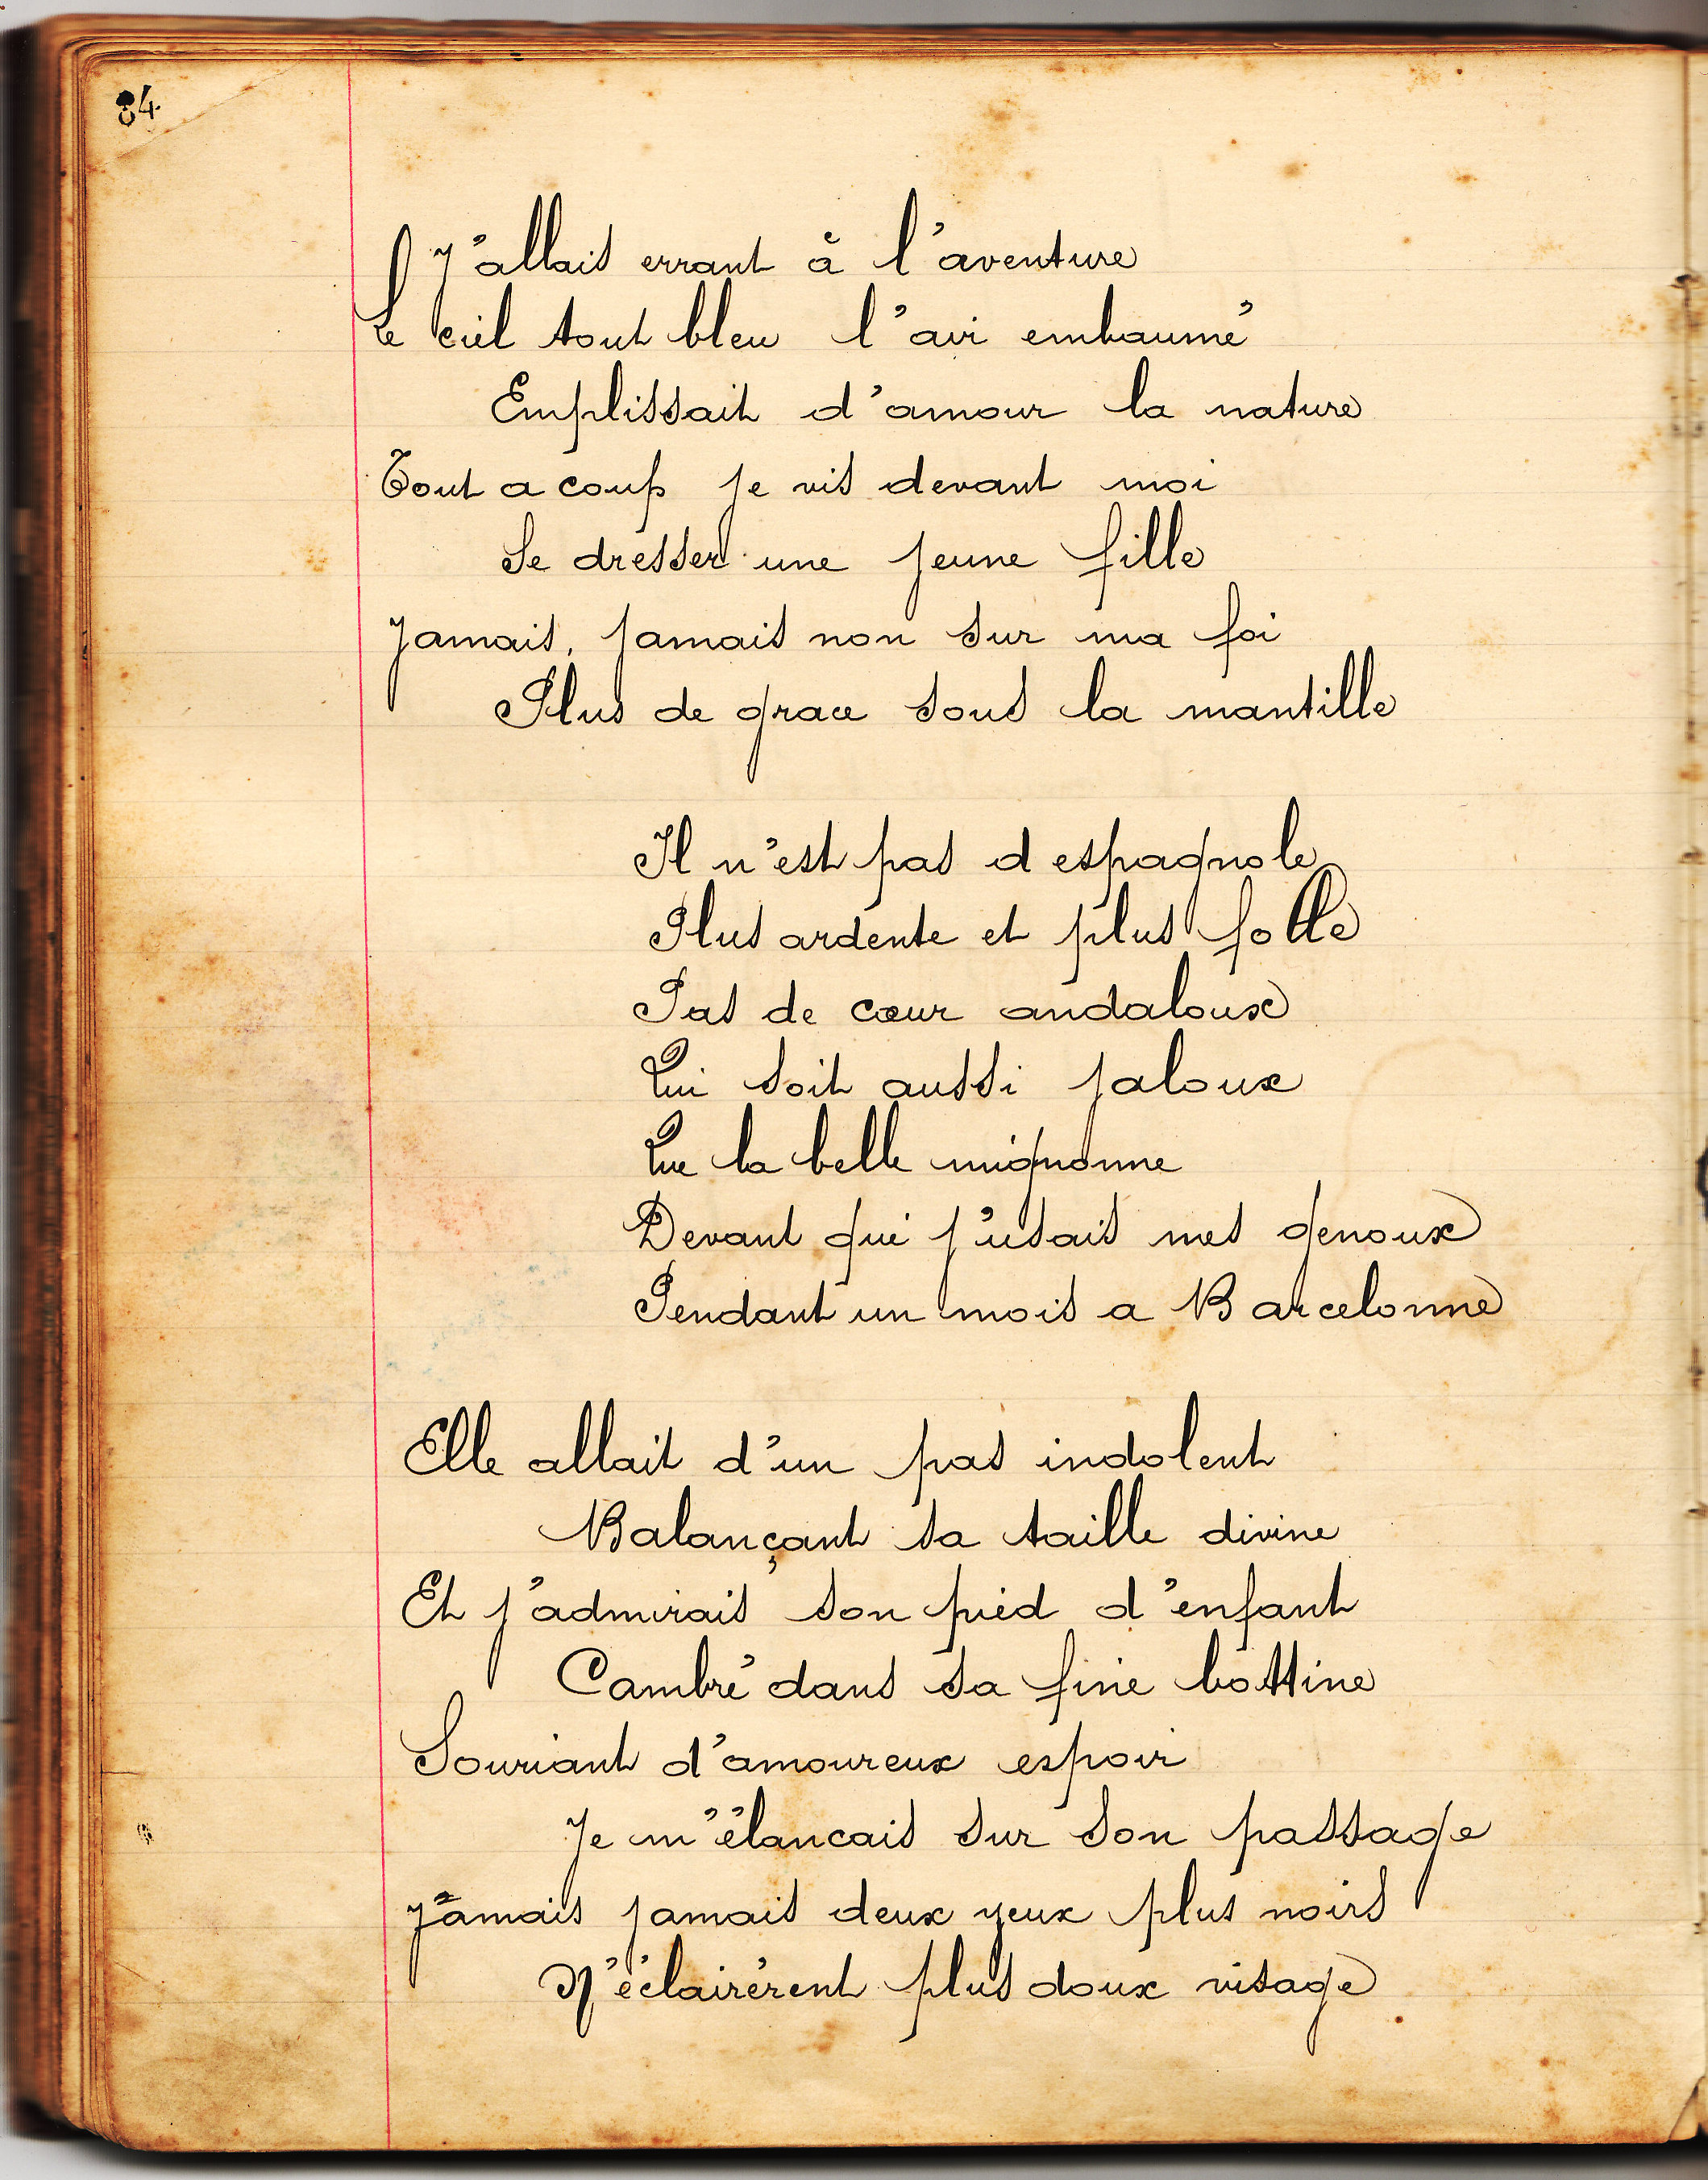 84
J'allais errant à l'aventure
Le ciel tout bleu l'air embaumé
Emplissait d'amour la nature
Tout a coup je vis devant moi
Se dresser une jeune fille
Jamais, jamais non sur ma foi
Plus de grace sous la mantille
Il n'est pas d espagnole
Plus ardente et plus folle
Pas de cœur andaloux
Qui soit aussi jaloux
Que la belle mignonne
Devant qui j'usais mes genoux
Pendant un mois a Barcelonne
Elle allait d'un pas indolent
Balançant sa taille divine
Et j'admirais son pied d'enfant
Cambré dans sa fine bottine
Souriant d'amoureux espoir
Je m'élancais sur son passage
Jamais jamais deux yeux plus noirs
N'éclairèrent plus doux visage